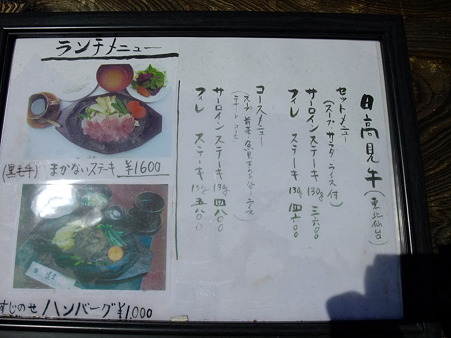 ランチメニュー
(黒毛牛) まかないステーキ ¥1600
すじのせ ハンバーグ ¥1,000
日高見牛(東北仙台)
セットメニュー
(スープ サラダ ライス付)
サーロインステーキ 130g 三六〇〇
フィレ ステーキ 130g 四六〇〇
コースメニュー
サーロインステーキ 130g 四八〇〇
フィレ ステーキ 130g 五八〇〇